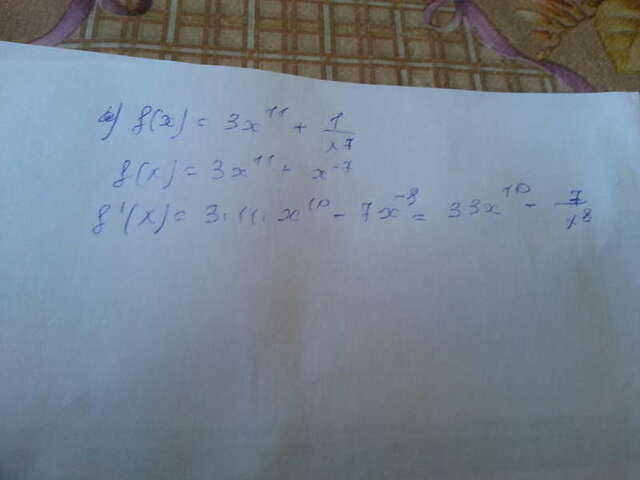 а) f(x) = 3x^11 + 1/x^7
f(x) = 3x^11 + x^-7
f'(x) = 3·11·x^10 - 7x^-8 = 33x^10 - 7/x^8